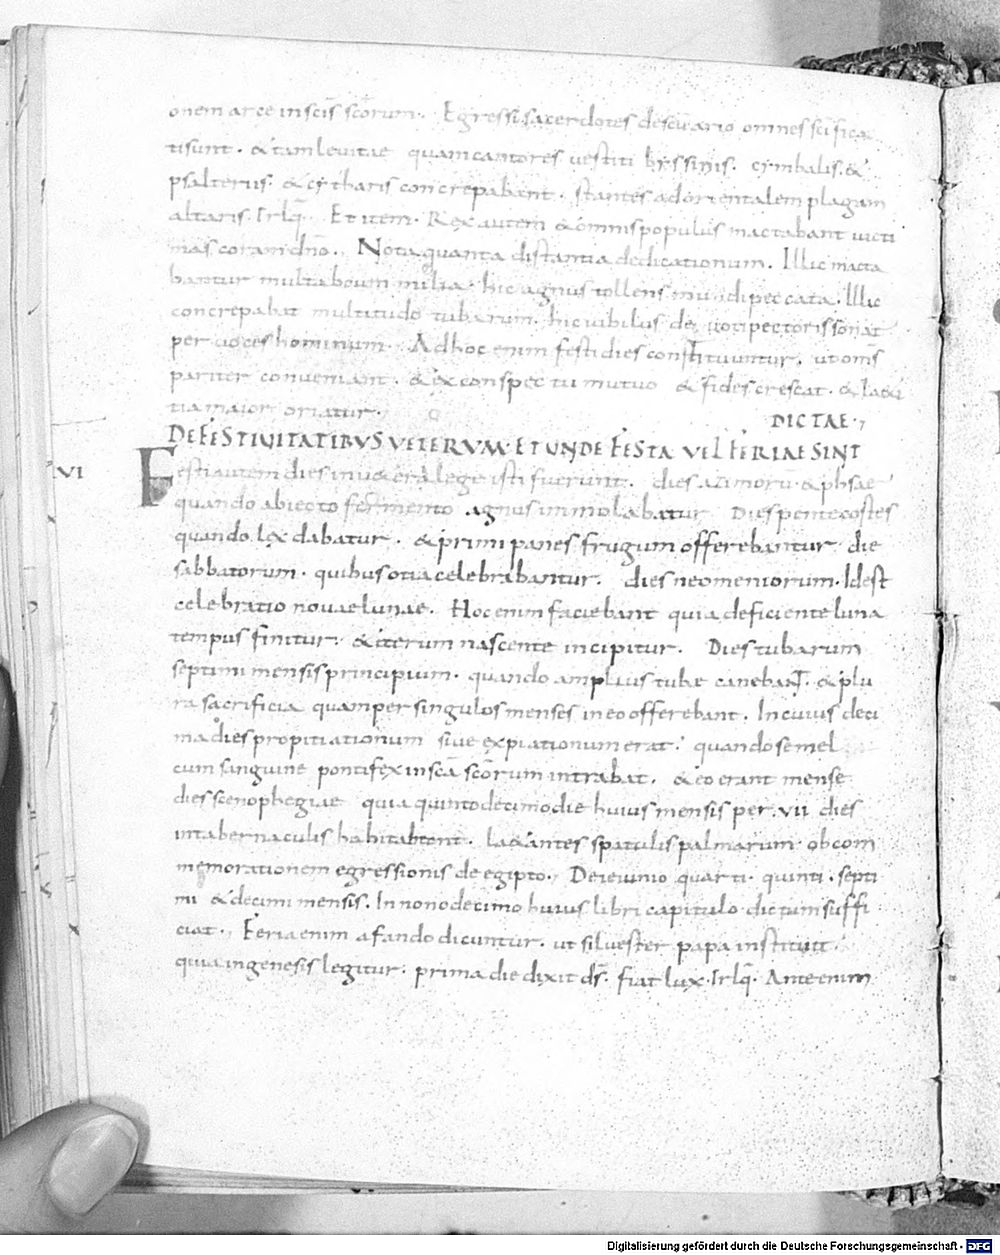 onem arce in scīs scōrum. Egressi sacerdotes de scuario omnes scīfica
ti sunt. & tam levitae quam cantores vestiti byssinis. cymbalis. &
psalteriis. & cytharis concrepabant. stantes ad orientalem plagam
altaris. Et item. Rex autem & omnis populus mactabant victi
mas coram dnō. Nota quanta distantia dedicationum. Illic macta
bantur multa boum milia. hic agnus tollens mundi peccata. Illic
concrepabat multitudo tubarum. hic iubilus de pectoris sonat
per voces hominum. Ad hoc enim festi dies constituuntur, ut omīs
pariter conveniant. & ex conspectu mutuo & fides crescat. & laeti
tia maior oriatur.
DICTAE.
DE FESTIVITATIBVS VETERVM. ET UNDE FESTA VEL FERIAE SINT
VI
Festi autem dies in vetera lege isti fuerunt. dies azimorū & phsae
quando abiecto fermento agnus immolabatur. Dies pentecostes
quando lex dabatur. & primi panes frugum offerebantur. die
sabbatorum. quibus otia celebrabantur. dies neomeniorum. Idest
celebratio novae lunae. Hoc enim faciebant quia deficiente luna
tempus finitur. & iterum nascente incipitur. Dies tubarum
septimi mensis principium. quando amplius tubae canebaNT. & plu
ra sacrificia quam per singulos menses in eo offerebant. In cuius deci
mo dies propitiationum sive expiationum erat. quando semel
cum sanguine pontifex in scā scōrum intrabat. & eo erant mense
dies scenophegiae quia quinto decimo die huius mensis per .vii. dies
in tabernaculis habitabant. laetantes spatulis palmarum. ob com
memorationem egressionis de egipto. De ieiunio quarti. quinti. septi
mi & decimi mensis. In nono decimo huius libri capitulo dictum suffi
ciat. Feria enim a fando dicuntur. ut silvester papa instituit.
quia in genesis legitur. prima die dixit dṡ. fiat lux. Irlq̄. Ante enim
Digitalisierung gefördert durch die Deutsche Forschungsgemeinschaft - DFG